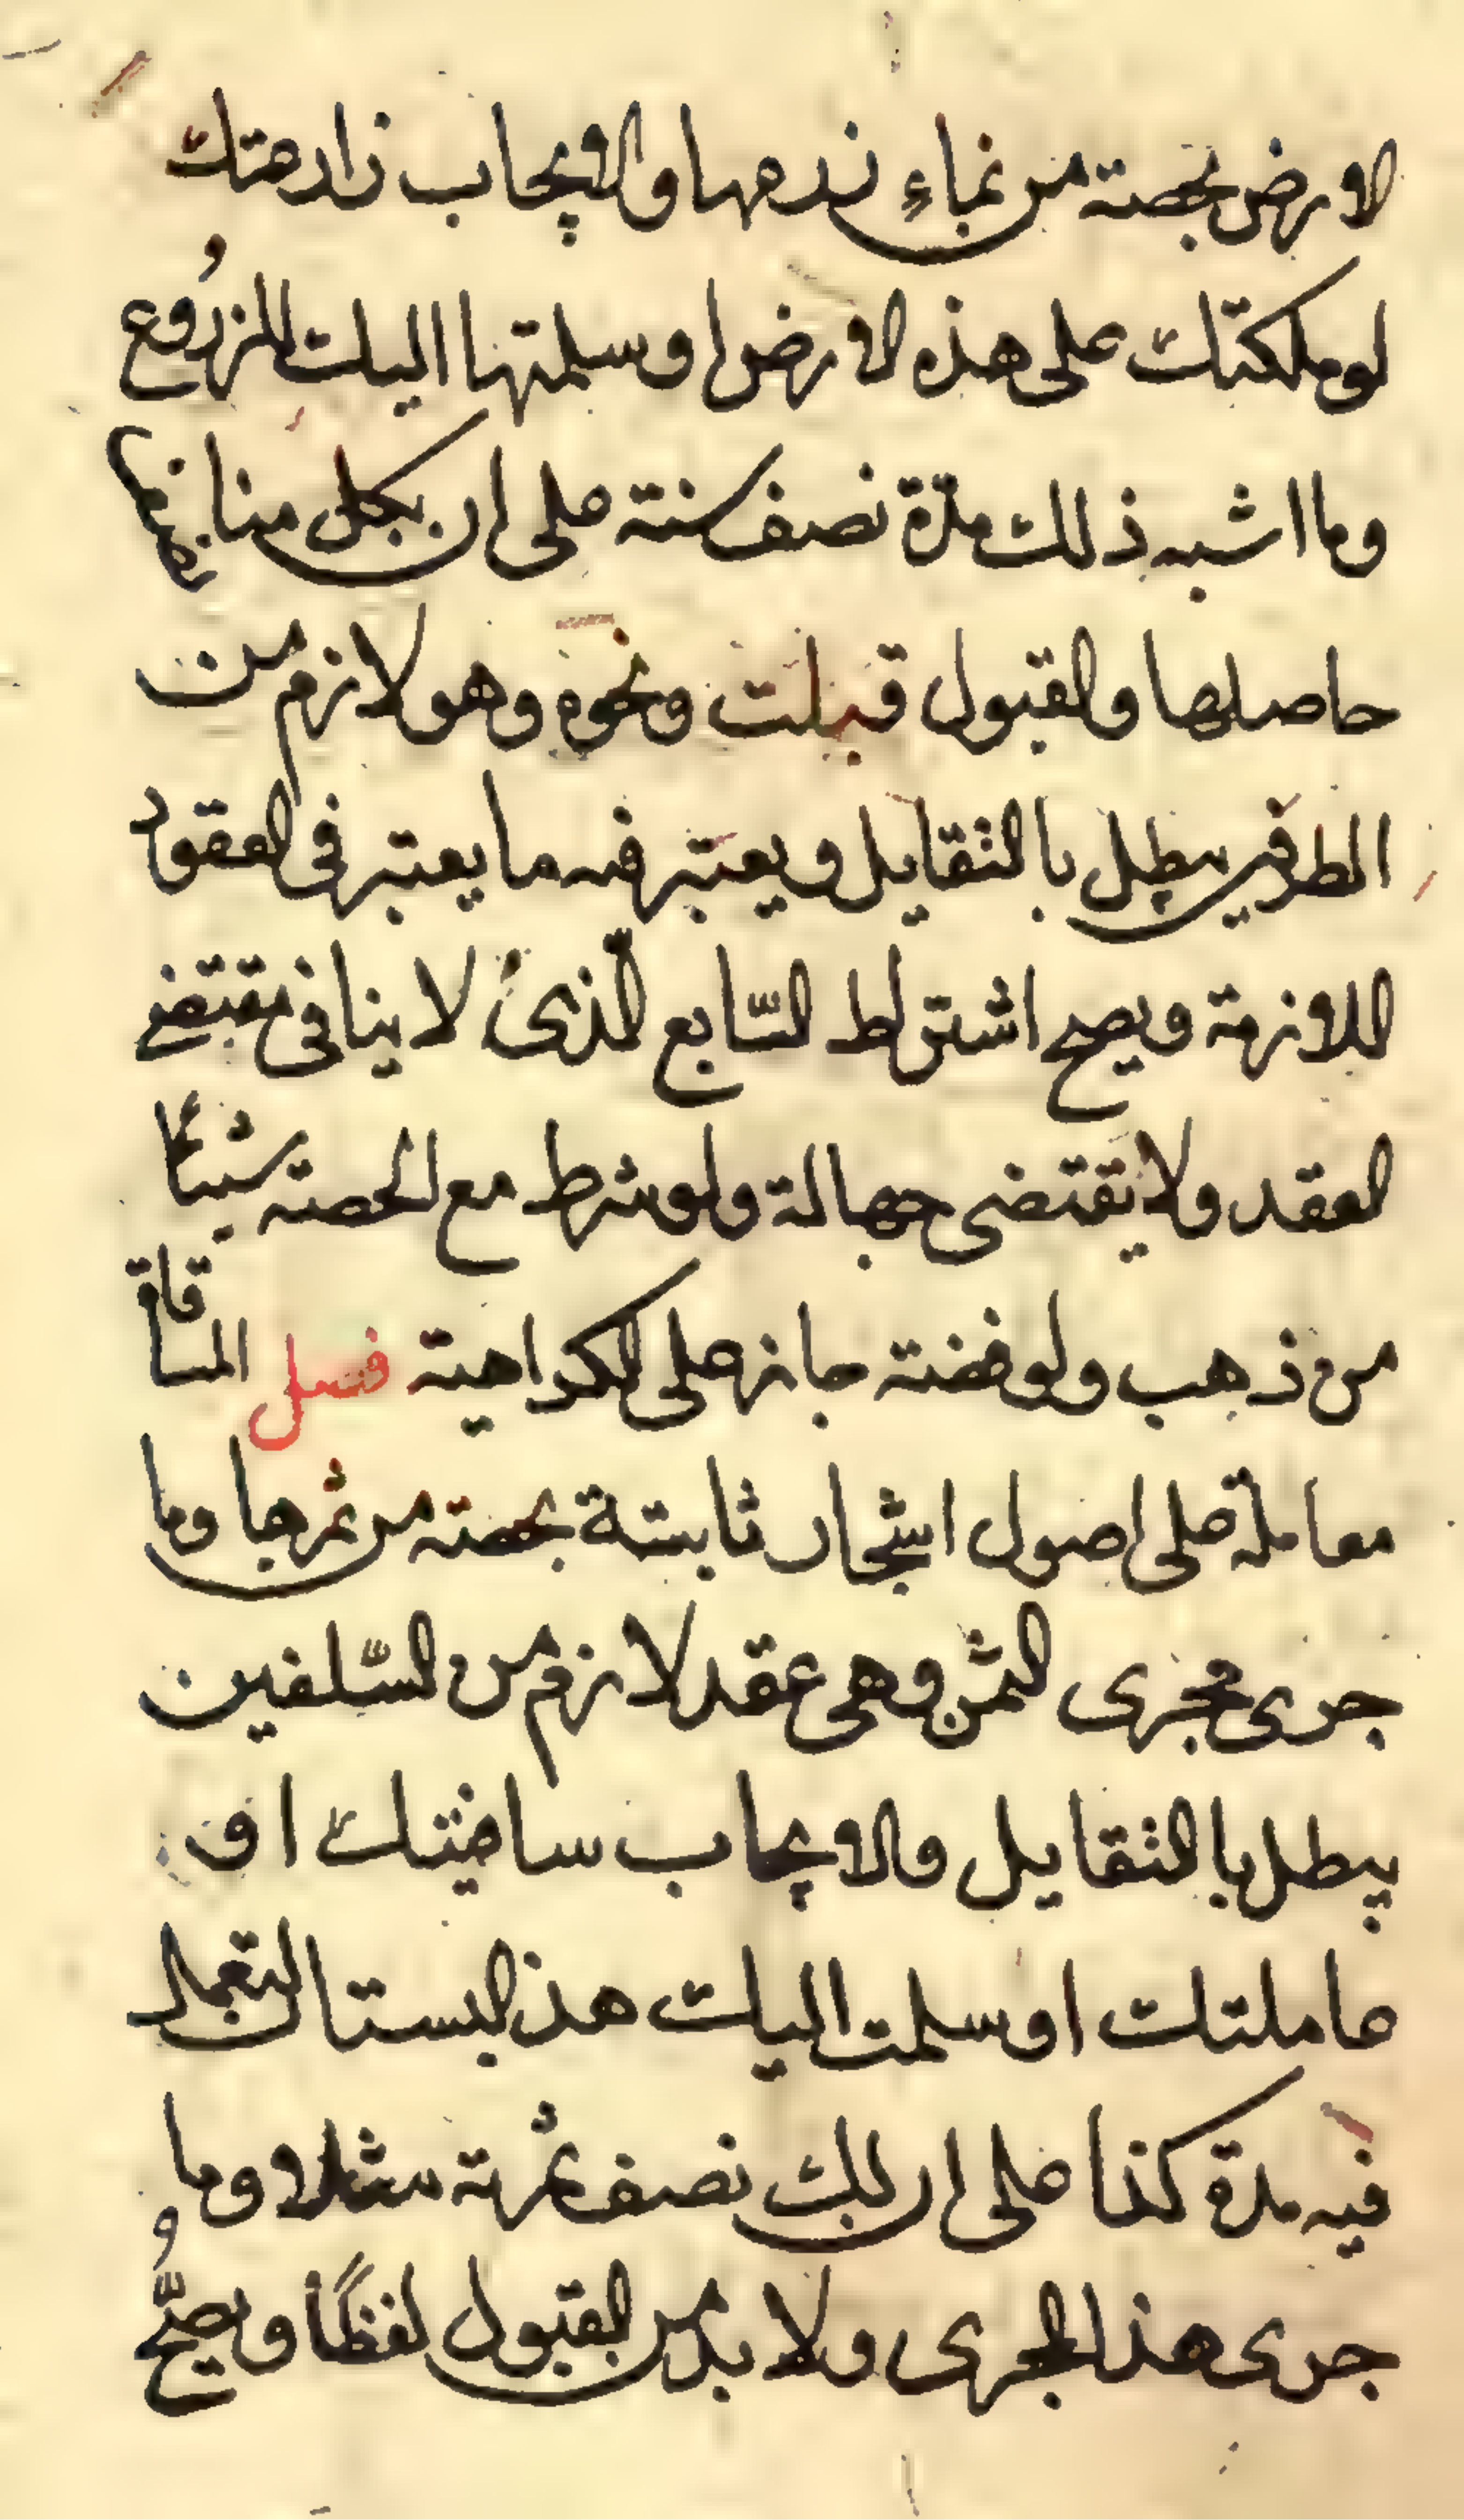 الارض بحصة من نماء زرعها والايجاب زارعتك
او ملكتك على هذه الارض او سلمتها اليك للزروع
وما اشبه ذلك مدّة نصف سنة على ان بكل منا نصف
حاصلها والقبول قبلت ونحوه وهو لازم من
الطرفين يبطل بالتقايل ويعتبر فيه ما يعتبر فى العقود
اللازمة ويصح اشتراط السّايع الّذى لا ينافى مقتضى
العقد ولا يقتضى جهالة ولو شرط مع الحصة شيئاً
من ذهب او فضة جاز على الكراهية فصل المساقاة
معاملة على اصول اشجار ثابتة بحصة من ثمرها وما
جرى مجرى الثمن وهى عقد لازم من السّلفين
يبطل بالتقايل والايجاب ساقيتك او
عاملتك او سلمت اليك هذ البستان لتعمل
فيه مدة كذا على ان لك نصف ثمرته مثلا وما
جرى هذا المجرى ولا بد من القبول لفظاً ويصحّ